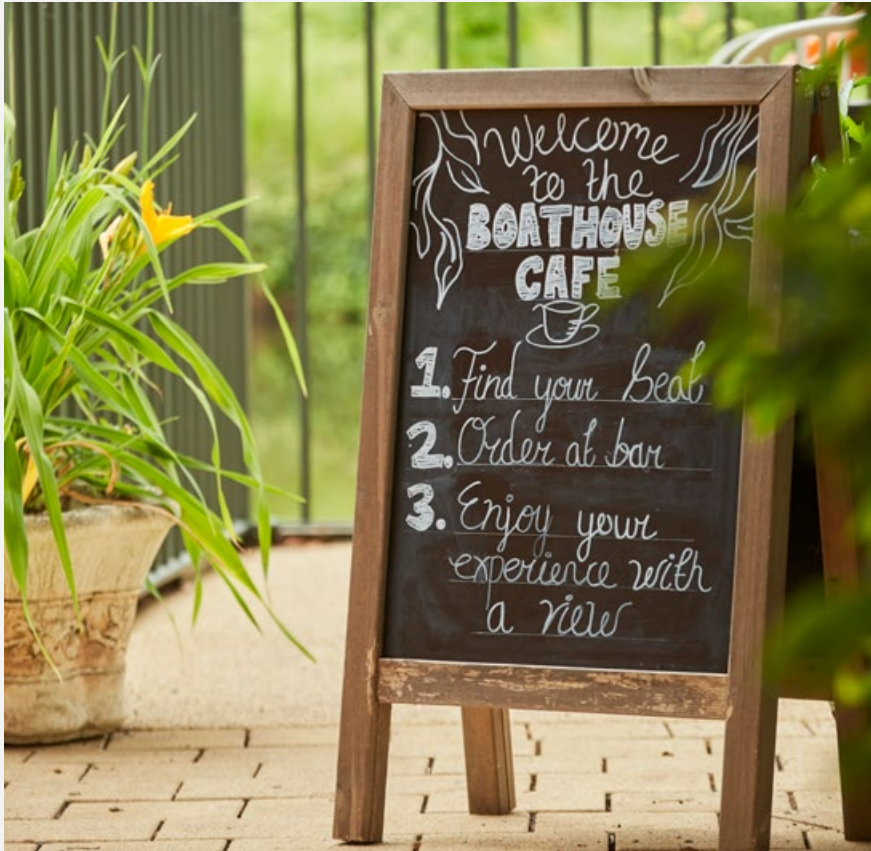 Welcome
to the
BOATHOUSE
CAFE
1. Find your seat
2. Order at bar
3. Enjoy your
experience with
a view